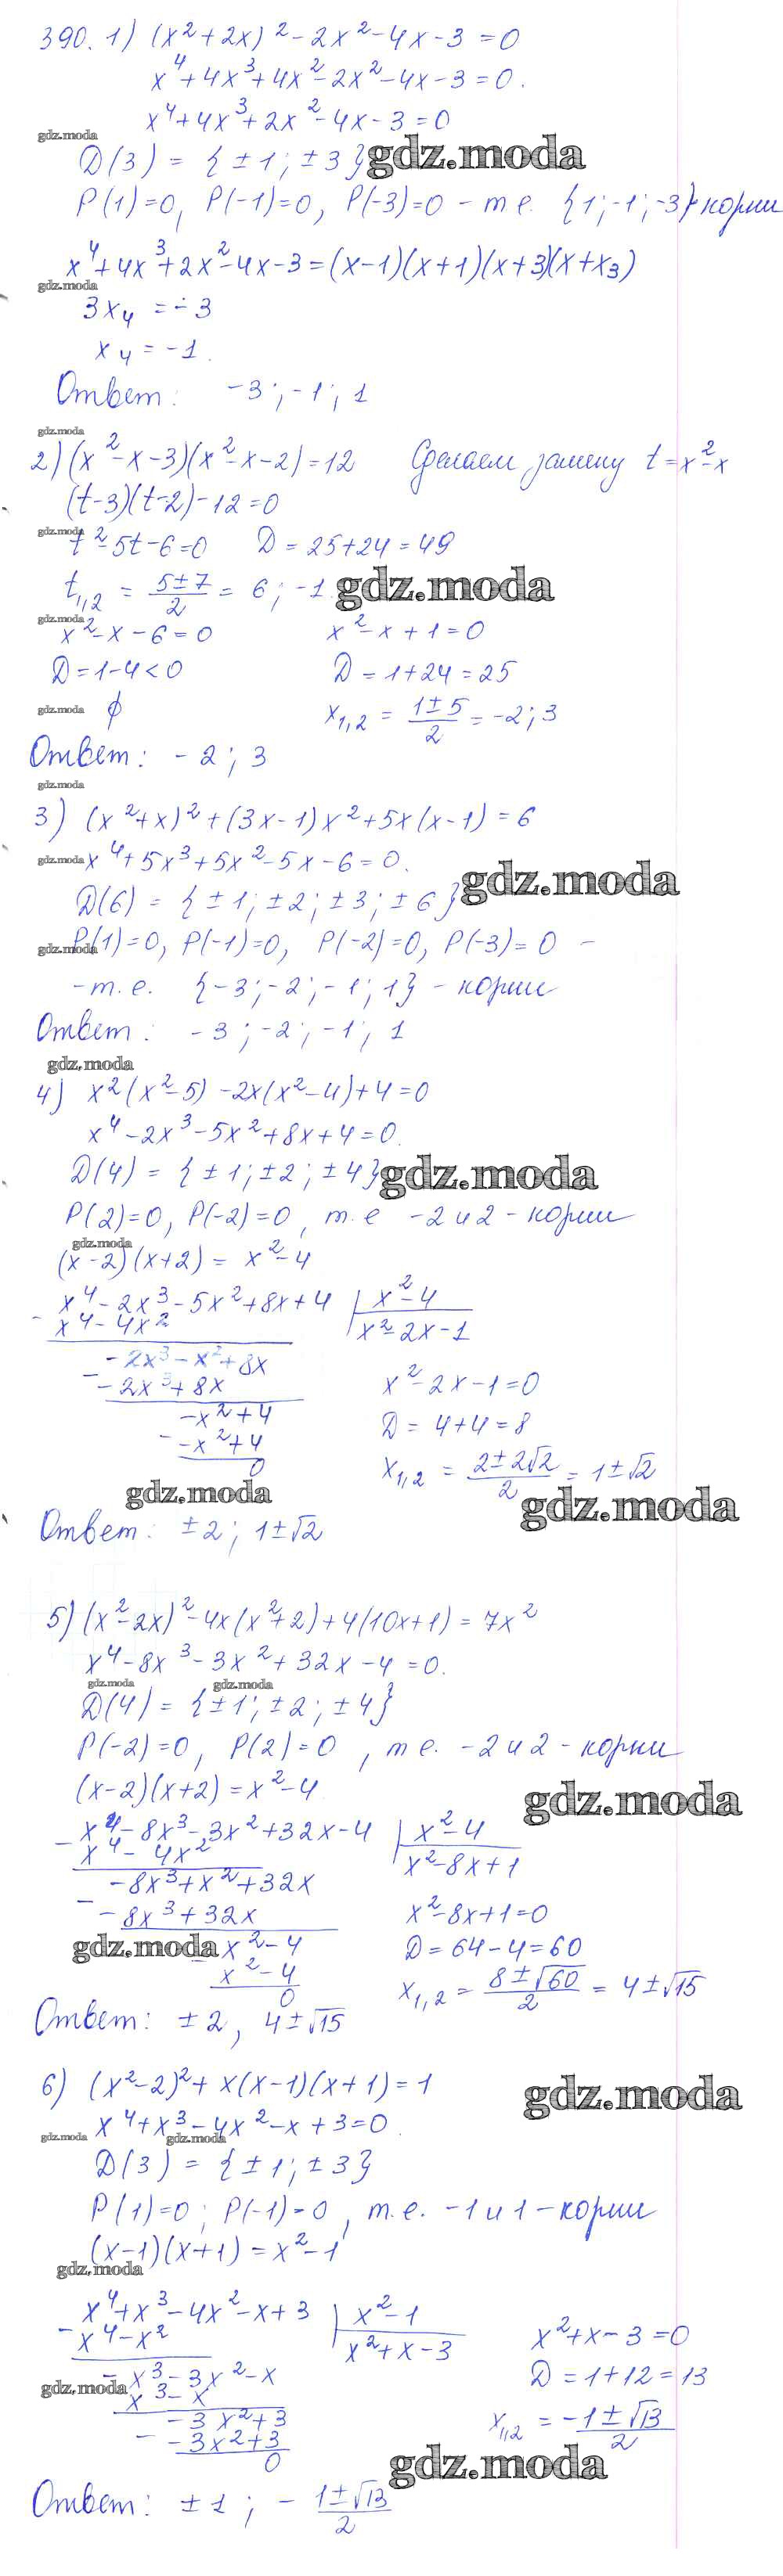 390. 1) (x² + 2x)² - 2x² - 4x - 3 = 0
x⁴ + 4x³ + 4x² - 2x² - 4x - 3 = 0.
x⁴ + 4x³ + 2x² - 4x - 3 = 0
gdz.moda
D(3) = {±1; ±3} gdz.moda
P(1)=0, P(-1)=0, P(-3)=0 - т.е. {1; -1; -3} - корни
x⁴ + 4x³ + 2x² - 4x - 3 = (x-1)(x+1)(x+3)(x+x₃)
gdz.moda
3x₄ = -3
x₄ = -1.
Ответ: -3; -1; 1
gdz.moda
2) (x² - x - 3)(x² - x - 2) = 12 Сделаем замену t = x² - x
(t-3)(t-2) - 12 = 0
gdz.moda
t² - 5t - 6 = 0 D = 25 + 24 = 49
t₁,₂ = (5±7)/2 = 6; -1 gdz.moda
gdz.moda
x² - x - 6 = 0 x² - x + 1 = 0
D = 1 - 4 < 0 D = 1 + 24 = 25
gdz.moda ϕ x₁,₂ = (1±5)/2 = -2; 3
Ответ: -2; 3
gdz.moda
3) (x² + x)² + (3x-1)x² + 5x(x-1) = 6
gdz.moda x⁴ + 5x³ + 5x² - 5x - 6 = 0.
D(6) = {±1; ±2; ±3; ±6} gdz.moda
gdz.moda P(1)=0, P(-1)=0, P(-2)=0, P(-3)=0 -
- т.е. {-3; -2; -1; 1} - корни
Ответ: -3; -2; -1; 1
gdz.moda
4) x²(x² - 5) - 2x(x² - 4) + 4 = 0
x⁴ - 2x³ - 5x² + 8x + 4 = 0.
D(4) = {±1; ±2; ±4} gdz.moda
P(2)=0, P(-2)=0, т.е -2 и 2 - корни
gdz.moda
(x-2)(x+2) = x² - 4
x⁴ - 2x³ - 5x² + 8x + 4 | x² - 4
- x⁴ - 4x² x² - 2x - 1
-2x³ - x² + 8x
- -2x³ + 8x x² - 2x - 1 = 0
-x² + 4 D = 4 + 4 = 8
- -x² + 4
0 x₁,₂ = (2±2√2)/2 = 1±√2
gdz.moda gdz.moda
Ответ: ±2; 1±√2
5) (x² - 2x)² - 4x(x² + 2) + 4(10x + 1) = 7x²
x⁴ - 8x³ - 3x² + 32x - 4 = 0.
gdz.moda gdz.moda
D(4) = {±1; ±2; ±4}
P(-2)=0, P(2)=0, т.е. -2 и 2 - корни
(x-2)(x+2) = x² - 4 gdz.moda
- x⁴ - 8x³ - 3x² + 32x - 4 | x² - 4
x⁴ - 4x² x² - 8x + 1
-8x³ + x² + 32x
- -8x³ + 32x x² - 8x + 1 = 0
gdz.moda x² - 4 D = 64 - 4 = 60
- x² - 4
0 x₁,₂ = (8±√60)/2 = 4±√15
Ответ: ±2, 4±√15
6) (x² - 2)² + x(x-1)(x+1) = 1 gdz.moda
x⁴ + x³ - 4x² - x + 3 = 0.
gdz.moda gdz.moda
D(3) = {±1; ±3}
P(1)=0; P(-1)=0, т.е. -1 и 1 - корни
(x-1)(x+1) = x² - 1
gdz.moda
x⁴ + x³ - 4x² - x + 3 | x² - 1
- x⁴ - x² x² + x - 3 x² + x - 3 = 0
x³ - 3x² - x D = 1 + 12 = 13
gdz.moda - x³ - x
-3x² + 3 x₁,₂ = (-1±√13)/2
- -3x² + 3
0 gdz.moda
Ответ: ±1; - (1±√13)/2